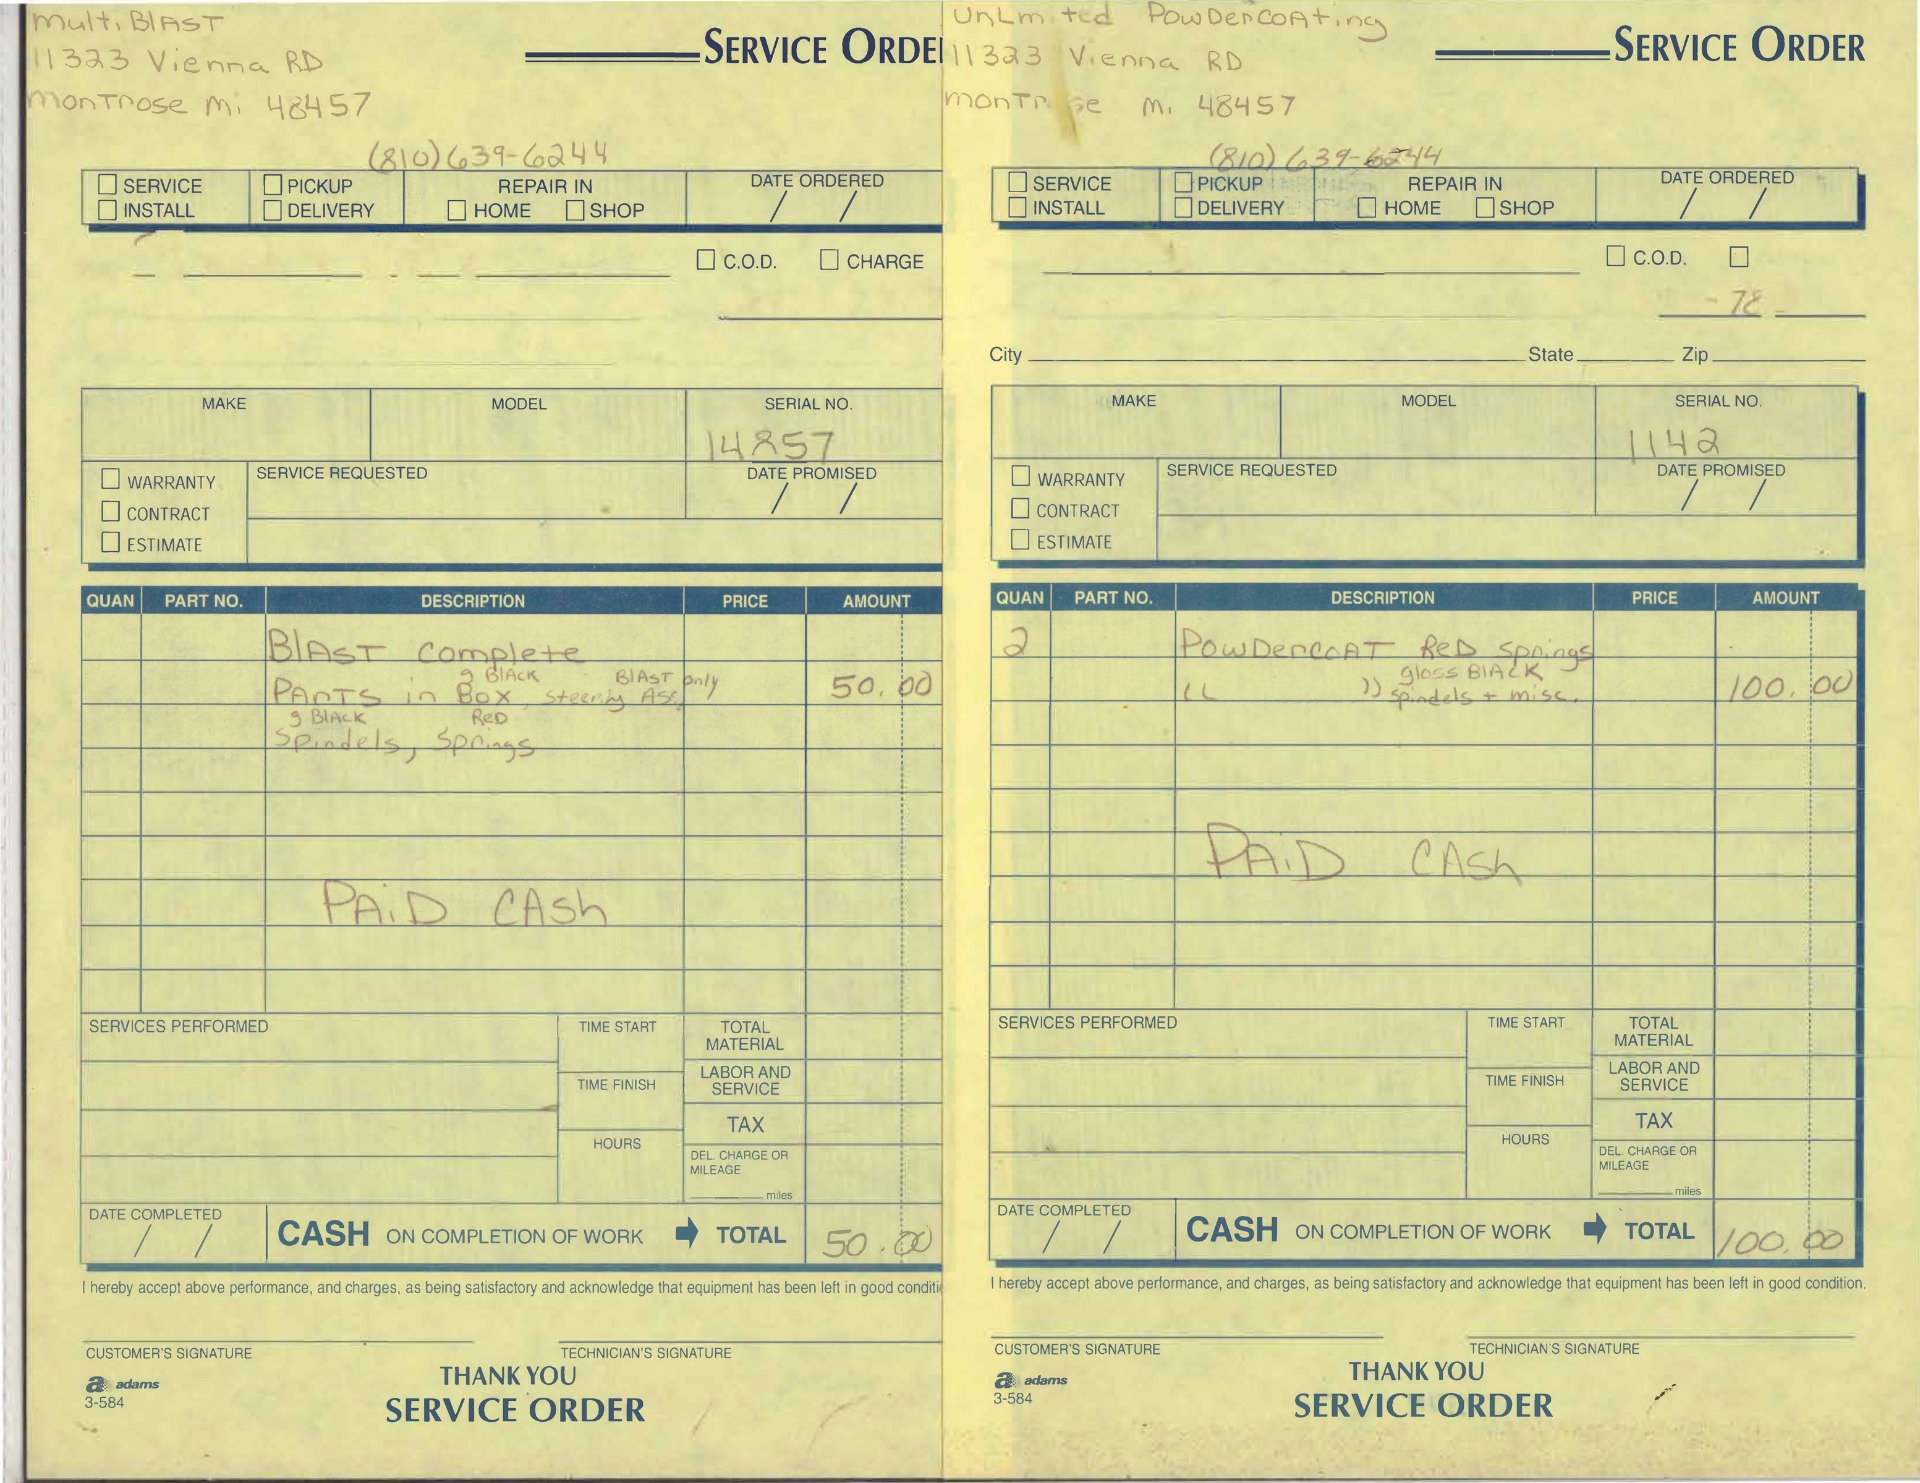 MultiBlAST
11323 Vienna RD
MonTrose Mi 48457
SERVICE ORDE
(810) 639-6244
SERVICE
INSTALL
PICKUP
DELIVERY
REPAIR IN
HOME SHOP
DATE ORDERED
/ /
C.O.D. CHARGE
MAKE MODEL SERIAL NO.
14857
WARRANTY
CONTRACT
ESTIMATE
SERVICE REQUESTED
DATE PROMISED
/ /
QUAN PART NO. DESCRIPTION PRICE AMOUNT
BlAST Complete
g BlAck BlAST only
PARTS in Box, Steering 50.00
g BlAck ReD
Spindels, Springs
PAiD CASh
SERVICES PERFORMED
TIME START
TIME FINISH
HOURS
TOTAL
MATERIAL
LABOR AND
SERVICE
TAX
DEL. CHARGE OR
MILEAGE
miles
DATE COMPLETED
/ /
CASH ON COMPLETION OF WORK TOTAL 50.00
I hereby accept above performance, and charges, as being satisfactory and acknowledge that equipment has been left in good conditi
CUSTOMER'S SIGNATURE TECHNICIAN'S SIGNATURE
adams
3-584
THANK YOU
SERVICE ORDER
UnLmited PowDercoAting
11323 Vienna RD
Mi 48457
SERVICE ORDER
(810) 639-6244
SERVICE
INSTALL
PICKUP
DELIVERY
REPAIR IN
HOME SHOP
DATE ORDERED
/ /
C.O.D.
City State Zip
MAKE MODEL SERIAL NO.
1142
WARRANTY
CONTRACT
ESTIMATE
SERVICE REQUESTED
DATE PROMISED
/ /
QUAN PART NO. DESCRIPTION PRICE AMOUNT
2 PowDercoAT ReD Springs
gloss BlACK
" " Spindels + misc. 100.00
PAiD CASh
SERVICES PERFORMED
TIME START
TIME FINISH
HOURS
TOTAL
MATERIAL
LABOR AND
SERVICE
TAX
DEL. CHARGE OR
MILEAGE
miles
DATE COMPLETED
/ /
CASH ON COMPLETION OF WORK TOTAL 100.00
I hereby accept above performance, and charges, as being satisfactory and acknowledge that equipment has been left in good condition.
CUSTOMER'S SIGNATURE TECHNICIAN'S SIGNATURE
adams
3-584
THANK YOU
SERVICE ORDER